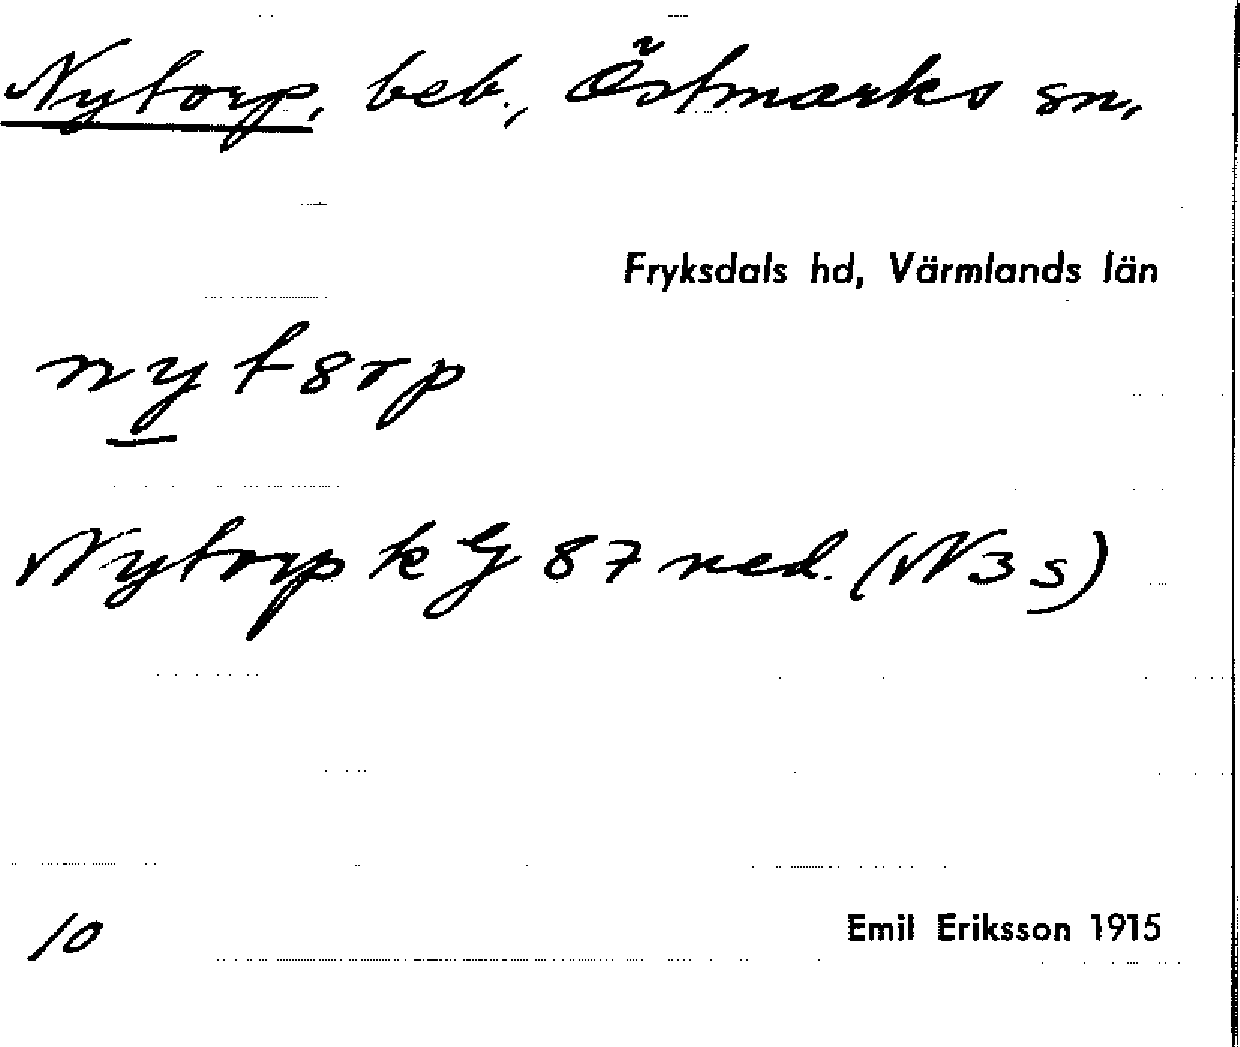 Nytorp, beb., Östmarks sn,
Fryksdals hd, Värmlands län
nyt8rp
Nytorp k G 87 ned. (N3s)
10
Emil Eriksson 1915